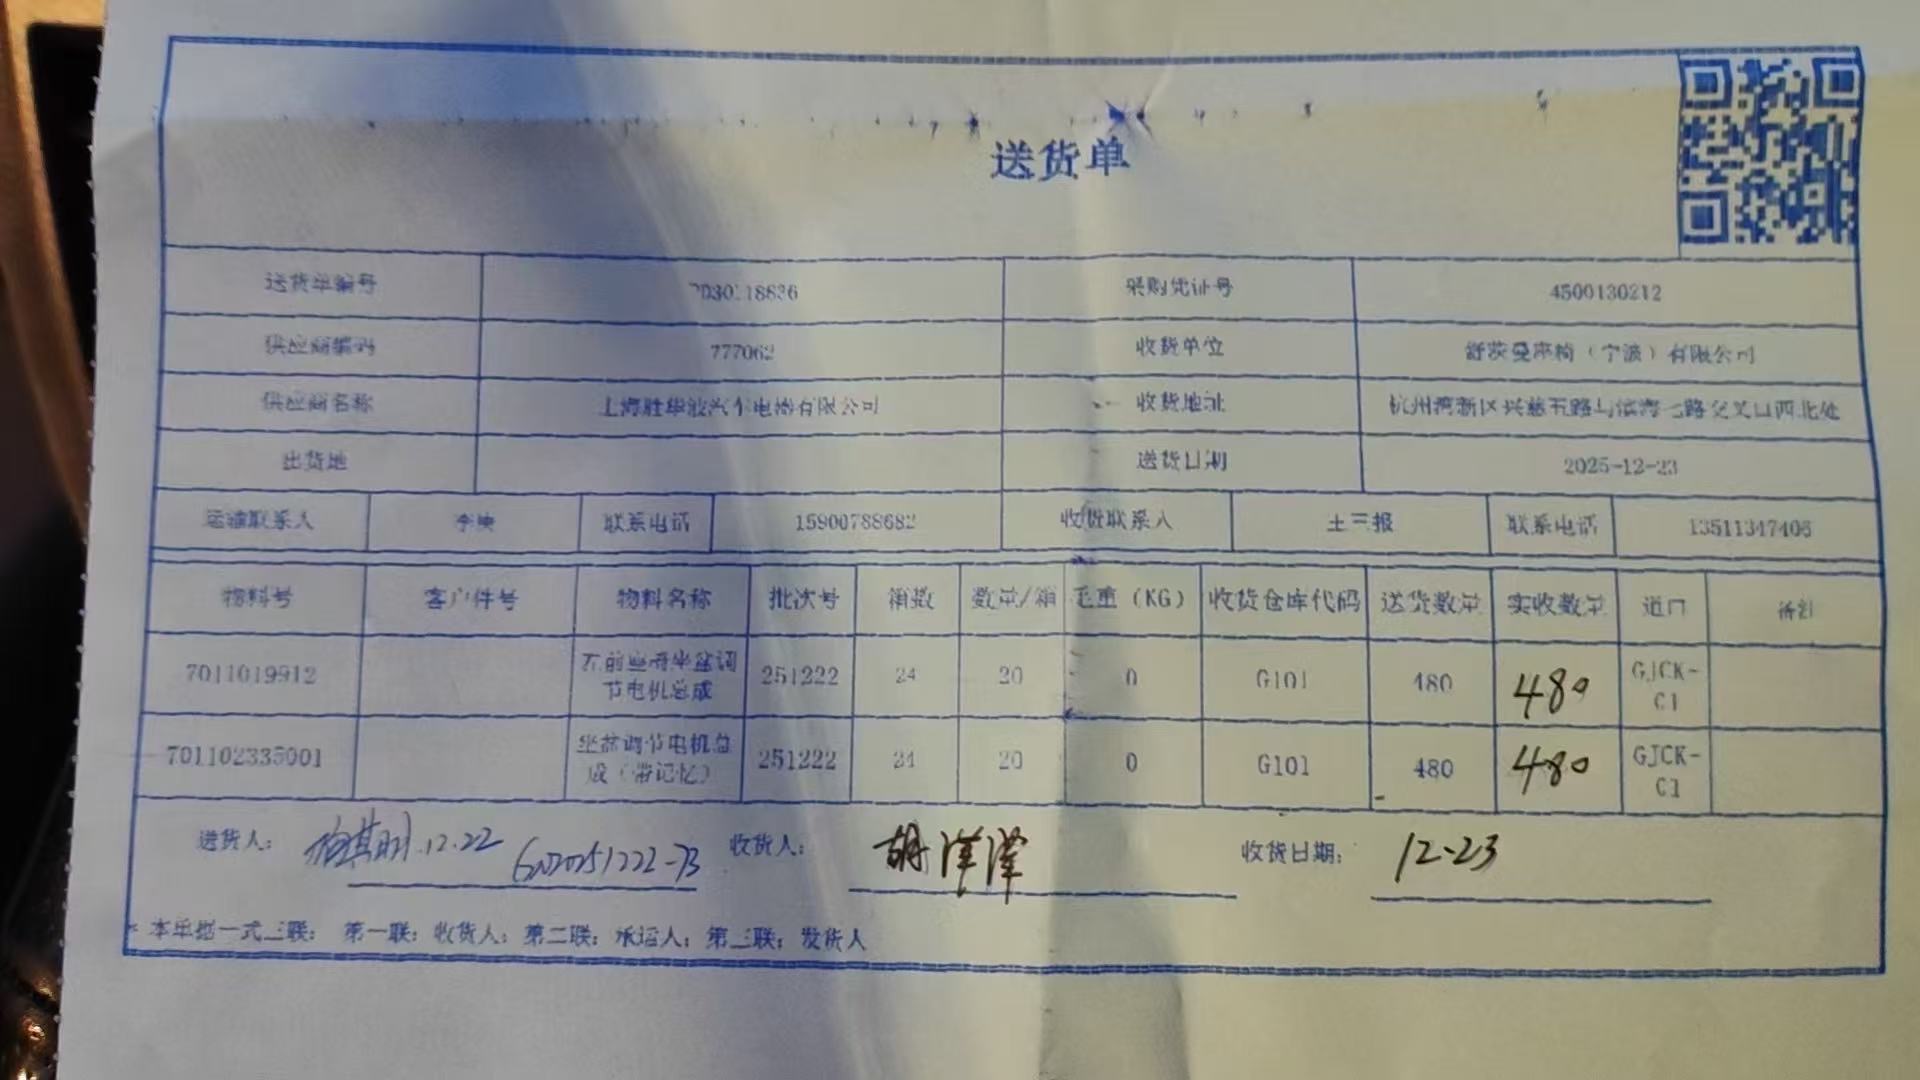 送货单
送货单编号 采购凭证号 4500130212
供应商编码 777062 收货单位 舒茨曼座椅（宁波）有限公司
供应商名称 上海胜华波汽车电器有限公司 收货地址 杭州湾新区兴慈五路与滨海七路交叉口西北处
出货地 送货日期 2025-12-23
运输联系人 联系电话 15900788682 收货联系人 联系电话 13511347406
物料号 客户件号 物料名称 批次号 箱数 数量/箱 毛重（KG） 收货仓库代码 送货数量 实收数量 道口
7011019912 251222 24 20 0 G101 480 480 GJCK-
节电机总成 C1
701102335001 坐盆调节电机总 251222 24 20 0 G101 480 480 GJCK-
成（带记忆） C1
送货人： 12.22 收货人： 胡洋泽 收货日期： 12-23
* 本单据一式三联： 第一联：收货人；第二联：承运人；第三联：发货人